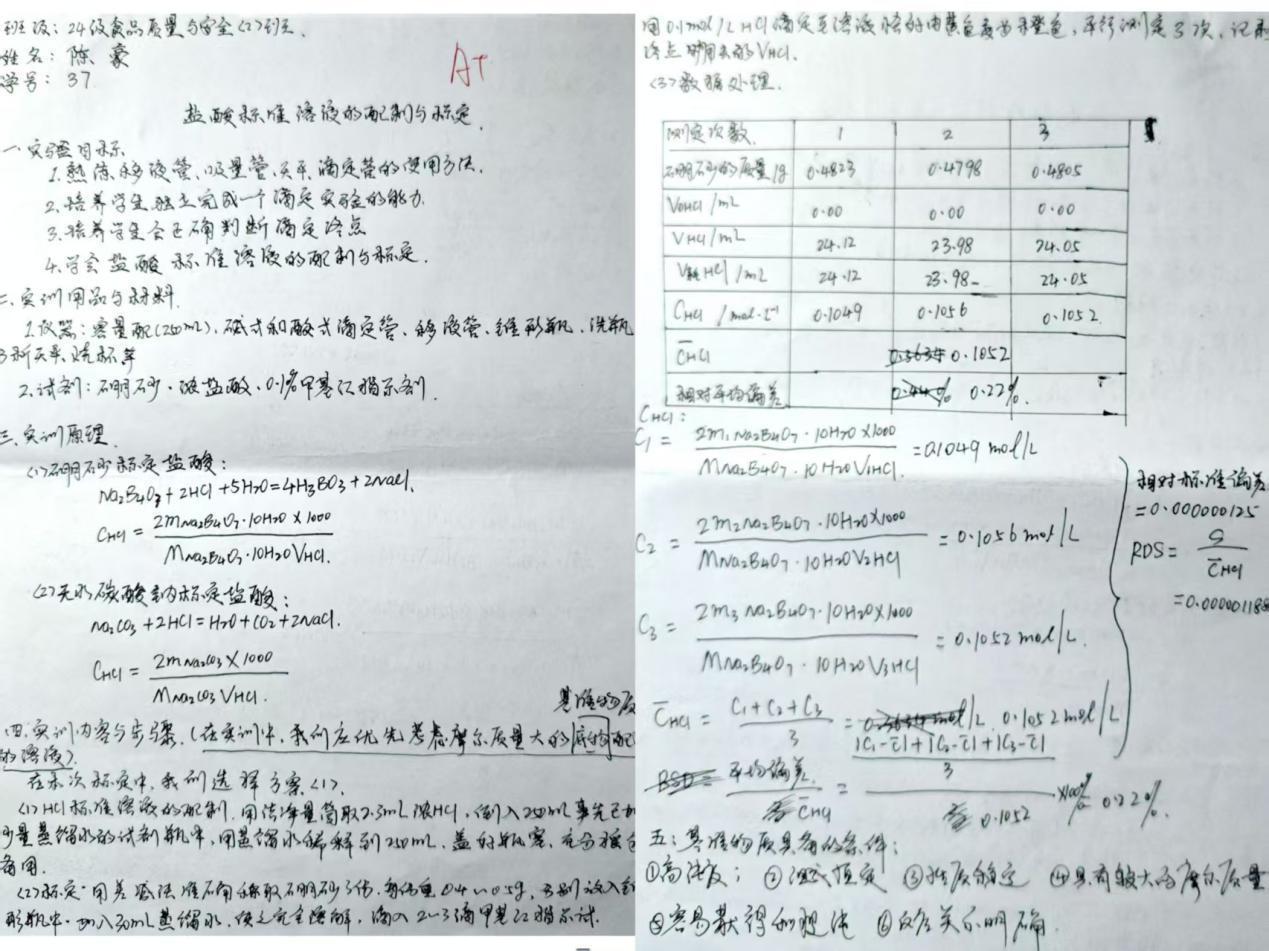 班级：24级食品质量与安全<2>班.
姓名：陈豪
学号：37
A+
盐酸标准溶液的配制与标定.
一.实验目标
1.熟练移液管、吸量管、天平、滴定管的使用方法.
2.培养学生独立完成一个滴定实验的能力.
3.培养学生会正确判断滴定终点
4.学会盐酸标准溶液的配制与标定.
二、实训用品与材料.
1.仪器：容量配(250mL)、碱式和酸式滴定管、移液管、锥形瓶、洗瓶
分析天平、烧杯等
2.试剂：硼砂、浓盐酸、0.1%甲基红指示剂.
三、实训原理.
<1>硼砂标定盐酸：
Na2B4O7+2HCl+5H2O=4H3BO3+2NaCl.
CHCl = 2mNa2B4O7·10H2O×1000
MNa2B4O7·10H2OVHCl.
<2>无水碳酸钠标定盐酸：
Na2CO3+2HCl=H2O+CO2+2NaCl.
CHCl = 2mNa2CO3×1000
MNa2CO3VHCl.
基准物质
四.实训内容与步骤.(在实训中，我们应优先考虑摩尔质量大的
的溶液).
在本次标定中，我们选择方案<1>.
<1>HCl标准溶液的配制.用洁净量筒取2.3mL浓HCl，倒入250mL事先已加
少量蒸馏水的试剂瓶中，用蒸馏水稀释到250mL，盖好瓶塞，充分摇匀
备用.
<2>标定:用差减法准确称取硼砂3份，每份重0.4~0.5g，分别放入锥
形瓶中.加入30mL蒸馏水，使之完全溶解，滴入2~3滴甲基红指示剂.
用0.1mol/L HCl滴定至溶液恰好由黄色变为橙色，平行测定3次，记录
终点时用去的VHCl.
<3>数据处理.
测定次数 1 2 3
硼砂的质量/g 0.4823 0.4798 0.4805
V0HCl/mL 0.00 0.00 0.00
VHCl/mL 24.12 23.98 24.05
V耗HCl/mL 24.12 23.98 24.05
CHCl/mol·L-1 0.1049 0.1056 0.1052
C̅HCl 0.1052
相对平均偏差 0.22%.
CHCl:
C1 = 2m1Na2B4O7·10H2O×1000
MNa2B4O7·10H2OV1HCl. =0.1049mol/L
C2 = 2m2Na2B4O7·10H2O×1000
MNa2B4O7·10H2OV2HCl =0.1056mol/L
C3 = 2m3Na2B4O7·10H2O×1000
MNa2B4O7·10H2OV3HCl =0.1052mol/L.
C̅HCl = C1+C2+C3
3 = 0.1052mol/L
相对标准偏差
=0.000000125
RDS= S
C̅HCl
=0.000001188
平均偏差
C̅HCl = |C1-C̅|+|C2-C̅|+|C3-C̅|
3
0.1052 ×100% 0.22%.
五：基准物质具备的条件：
①高纯度； ②组成恒定 ③性质稳定 ④具有较大的摩尔质量
⑤容易获得和 ⑥反应关系明确.